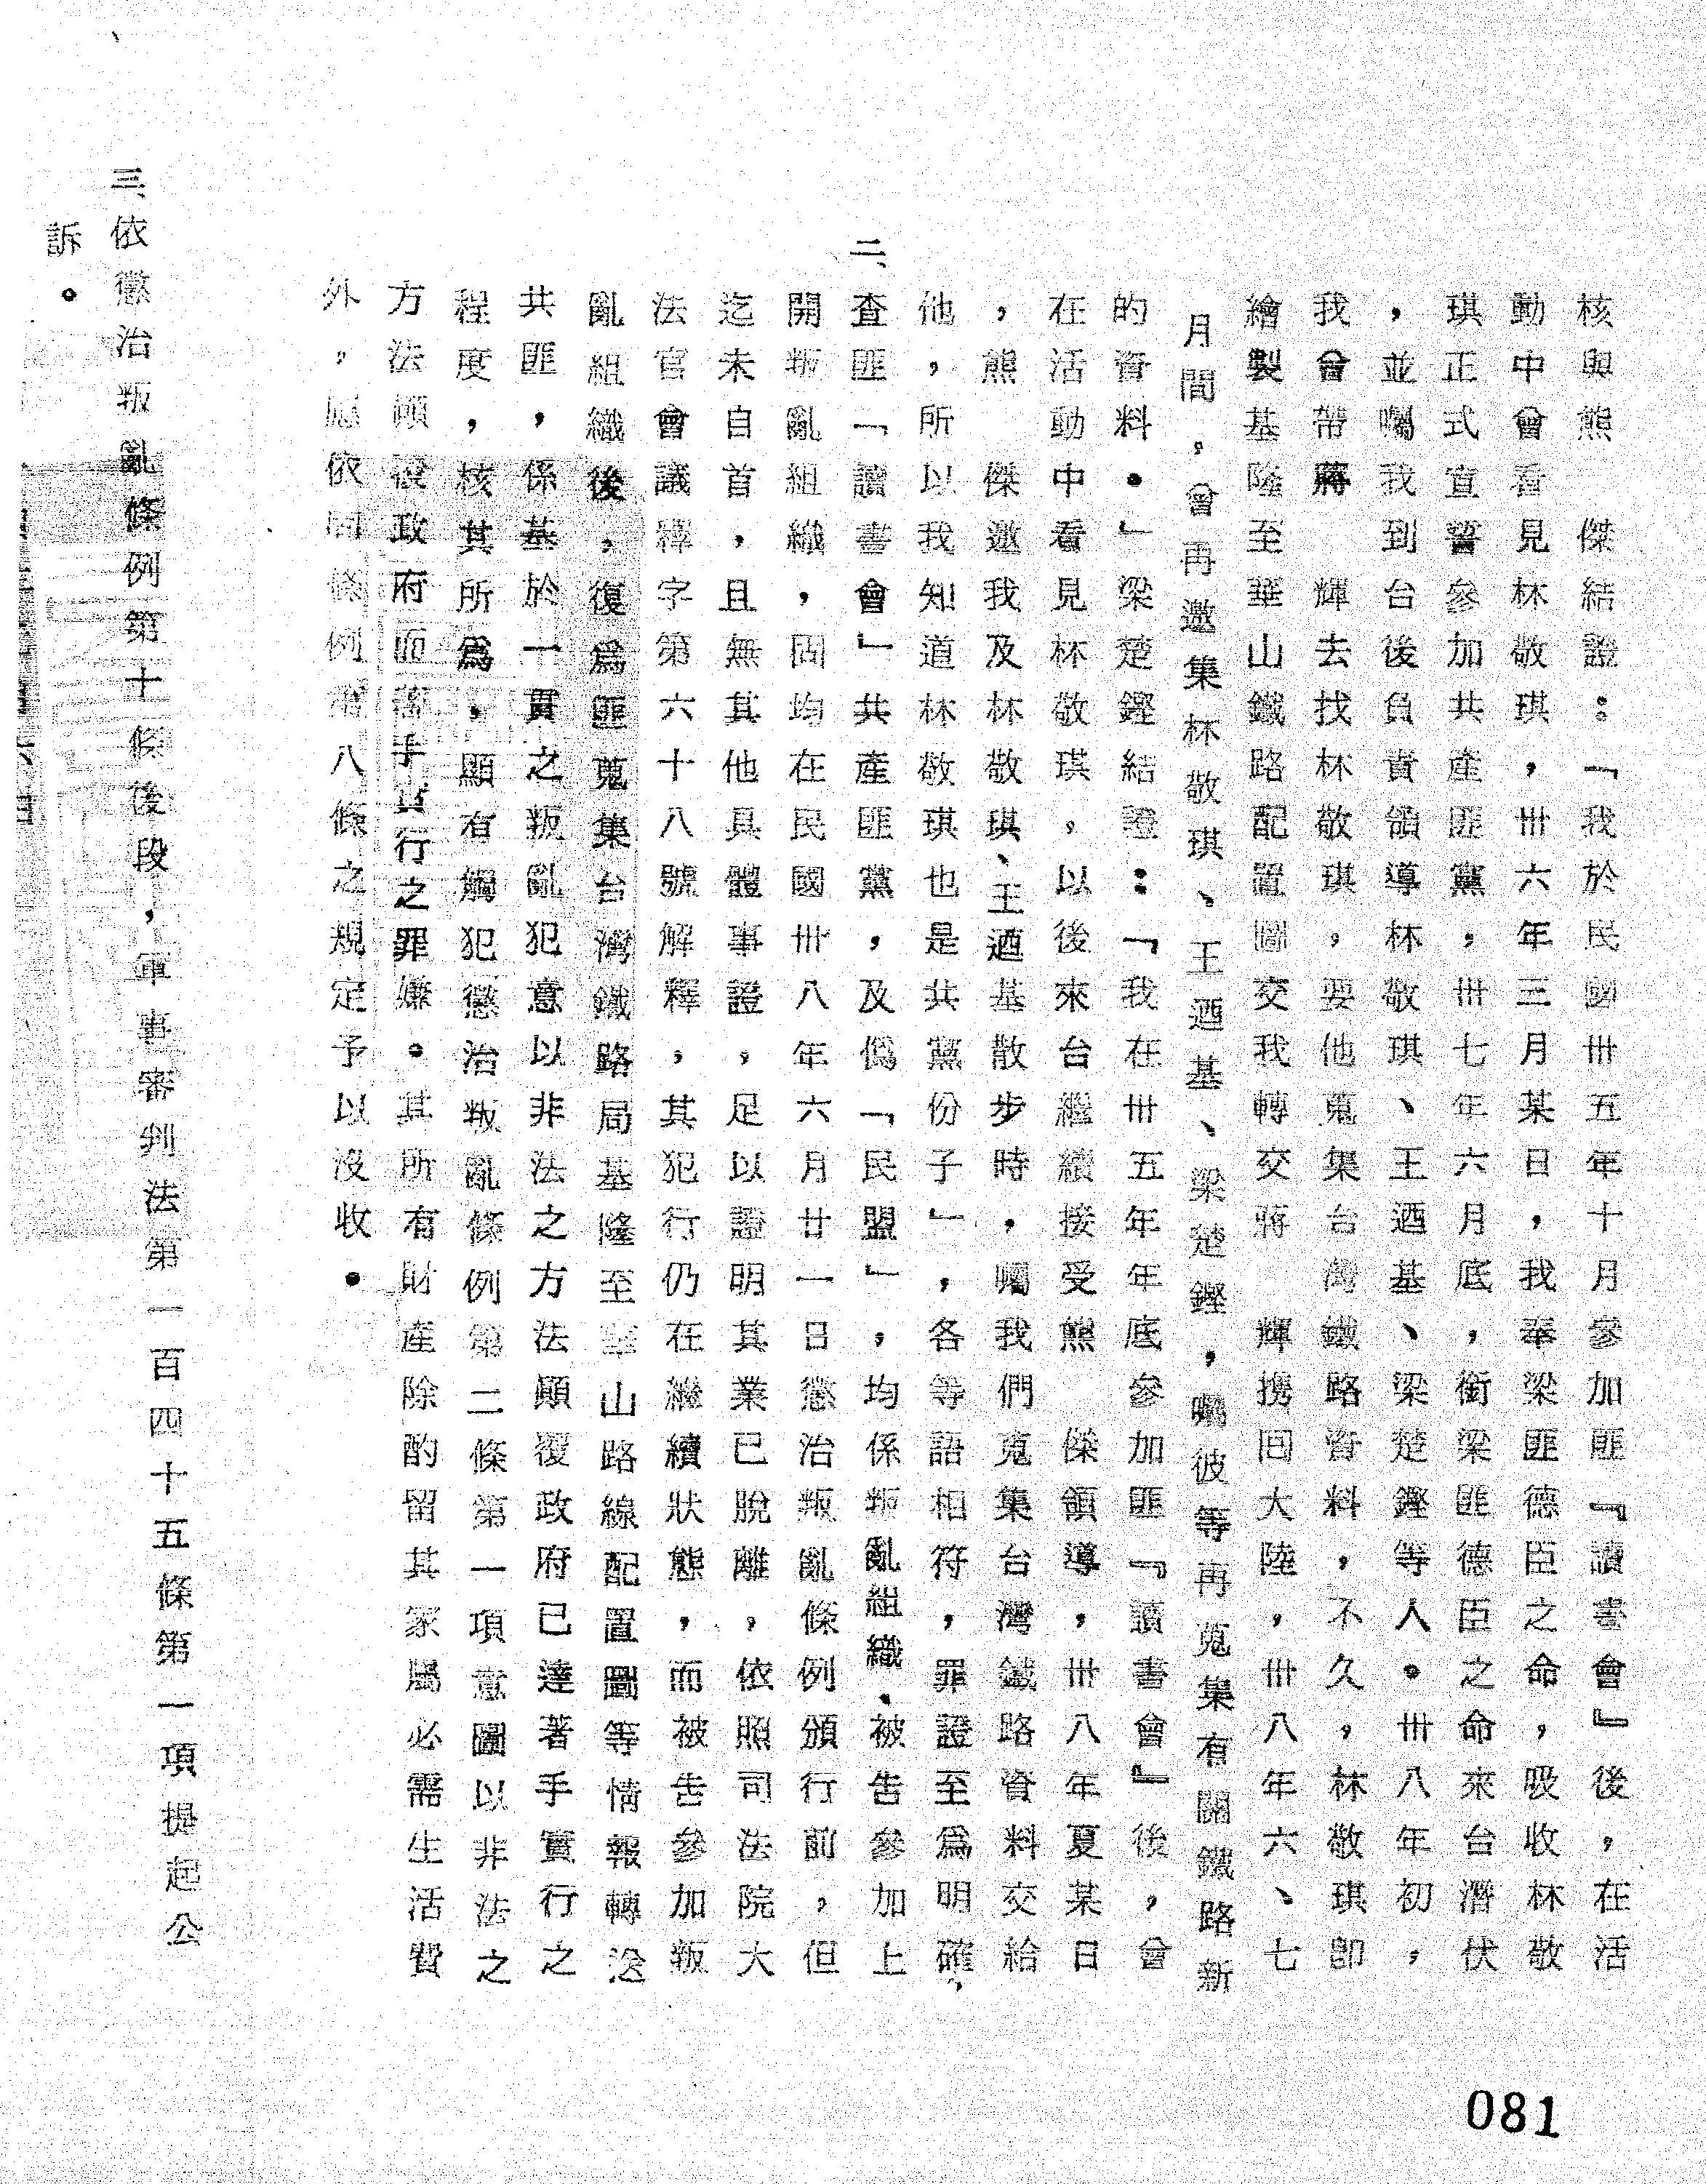 核與熊　傑結證：「我於民國卅五年十月參加匪『讀書會』後，在活
動中曾看見林敬琪，卅六年三月某日，我奉梁匪德臣之命，吸收林敬
琪正式宣誓參加共產匪黨，卅七年六月底，銜梁匪德臣之命來台潛伏
，並囑我到台後負責領導林敬琪、王迺基、梁楚鏗等人。卅八年初，
我會帶蔣　輝去找林敬琪，要他蒐集台灣鐵路資料，不久，林敬琪卽
繪製基隆至華山鐵路配置圖交我轉交蔣　輝携回大陸，卅八年六、七
月間，會再邀集林敬琪、王迺基、梁楚鏗，囑彼等再蒐集有關鐵路新
的資料。」梁楚鏗結證：「我在卅五年年底參加匪『讀書會』後，會
在活動中看見林敬琪，以後來台繼續接受熊　傑領導，卅八年夏某日
，熊　傑邀我及林敬琪、王迺基散步時，囑我們蒐集台灣鐵路資料交給
他，所以我知道林敬琪也是共黨份子」，各等語相符，罪證至爲明確，
二、查匪「讀書會」共產匪黨，及僞「民盟」，均係叛亂組織、被告參加上
開叛亂組織，固均在民國卅八年六月廿一日懲治叛亂條例頒行前，但
迄未自首，且無其他具體事證，足以證明其業已脫離，依照司法院大
法官會議釋字第六十八號解釋，其犯行仍在繼續狀態，而被告參加叛
亂組織後，復爲匪蒐集台灣鐵路局基隆至華山路線配置圖等情報轉送
共匪，係基於一貫之叛亂犯意以非法之方法顚覆政府已達著手實行之
程度，核其所爲，顯有觸犯懲治叛亂條例第二條第一項意圖以非法之
方法顚覆政府而著手實行之罪嫌。其所有財產除酌留其家屬必需生活費
外，應依同條例第八條之規定予以沒收。
三、依懲治叛亂條例第十條後段，軍事審判法第一百四十五條第一項提起公
訴。
081